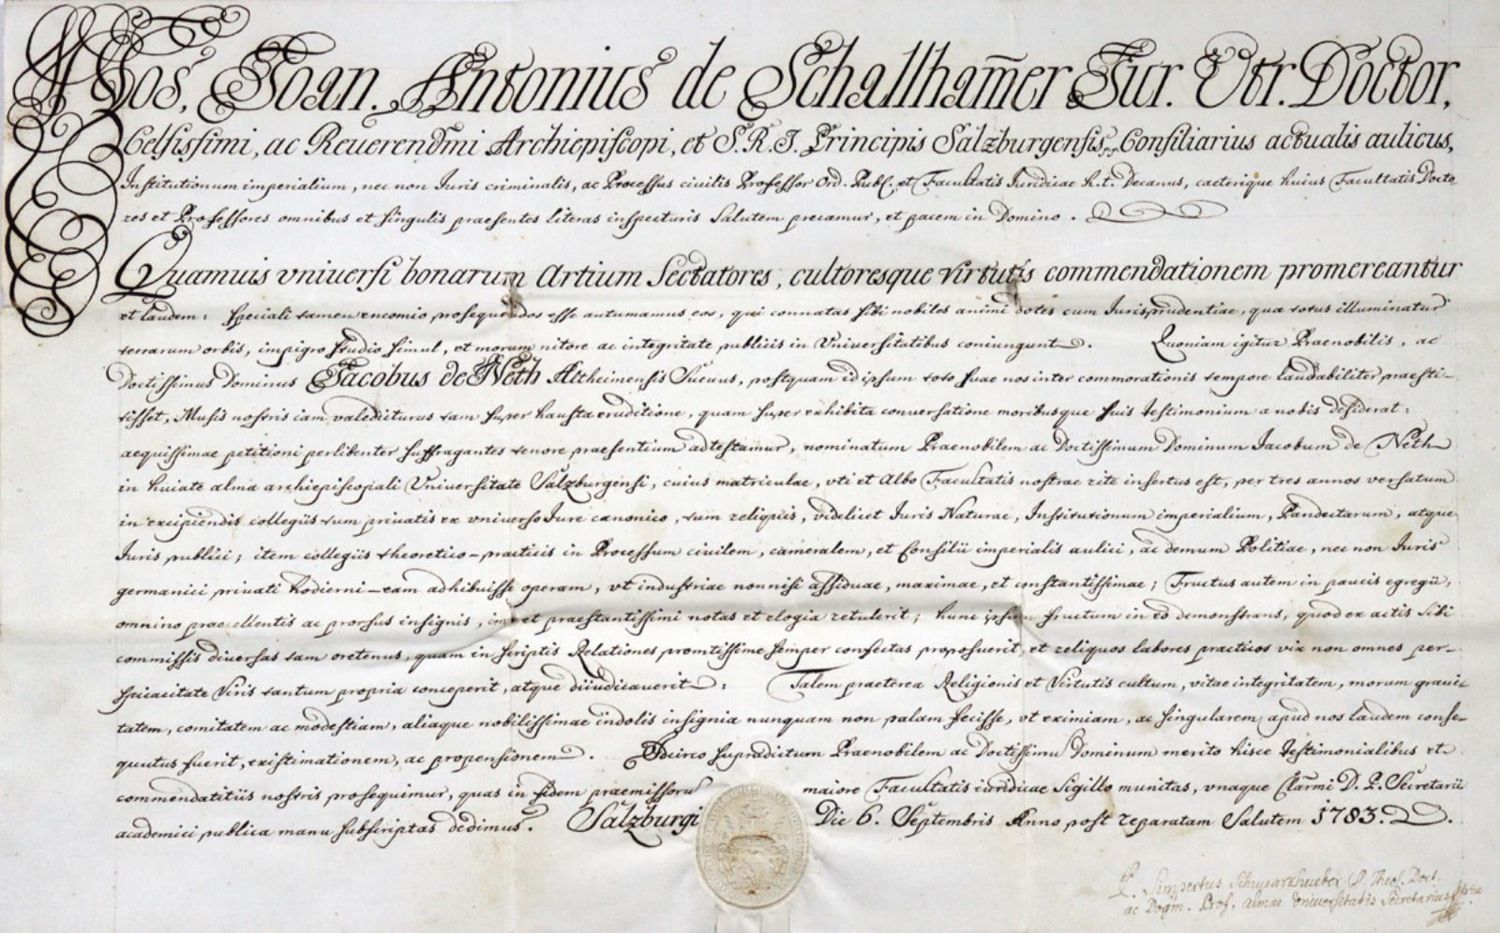 Nos, Joan. Antonius de Schallham̄er Jur. Vtr. Doctor,
Celsissimi, ac Reuerendm̄i Archiepiscopi, et S. R. I. Principis Salzburgensis Consiliarius actualis aulicus,
Institutionum imperialium, nec non Iuris criminalis, ac Processus ciuilis Professor Ord. Publ. et Facultatis Iuridicae h. t. Decanus, caeterique huius Facultatis Docto-
res et Professores omnibus et singulis praesentes literas inspecturis Salutem precamur, et pacem in Domino.
Quamuis vniuersi bonarum Artium Sectatores, cultoresque virtutis commendationem promereantur
et laudem: speciali tamen encomio prosequendos esse autumamus eos, qui connatas sibi nobiles animi dotes cum Iurisprudentiae, qua totus illuminatur
terrarum orbis, impigro studio simul, et morum nitore ac integritate publicis in Vniuersitatibus coniungunt. Quoniam igitur Praenobilis, ac
Doctissimus Dominus Jacobus de Neth Altheimensis Sueuus, postquam id ipsum toto suae nos inter commorationis tempore laudabiliter praesti-
tisset, Musis nostris iam valedicturus tam super hausta eruditione, quam super exhibita conuersatione moribusque suis testimonium a nobis desiderat:
aequissimae petitioni perlibenter suffragantes tenore praesentium adtestamur, nominatum Praenobilem ac Doctissimum Dominum Iacobum de Neth
in huiate alma archiepiscopali Vniuersitate Salzburgensi, cuius matriculae, vti et Albo Facultatis nostrae rite insertus est, per tres annos versatum
in excipiendis collegiis tum priuatis ex vniuerso Iure canonico, tum reliquis, videlicet Iuris Naturae, Institutionum imperialium, Pandectarum, atque
Iuris publici; item collegiis theoretico-practicis in Processum ciuilem, cameralem, et Consilii imperialis aulici, ac demum Politiae, nec non Iuris
germanici priuati hodierni eam adhibuisse operam, vt industriae nonnisi assiduae, maximae, et constantissimae; Fructus autem in paucis egregii,
omnino praecellentis ac prorsus insignis, imo et praestantissimi notas et elogia retulerit; hunc ipsum fructum in eo demonstrans, quod ex actis sibi
commissis diuersas tam oretenus, quam in scriptis Relationes promtissime semper confectas proposuerit, et reliquos labores practicos vix non omnes per-
spicacitate Viris tantum propria conceperit, atque diiudicauerit: Talem praeterea Religionis et Virtutis cultum, vitae integritatem, morum graui-
tatem, comitatem ac modestiam, aliaque nobilissimae indolis insignia nunquam non palam fecisse, vt eximiam, ac singularem apud nos laudem conse-
quutus fuerit, existimationem, ac propensionem. Idcirco supradictum Praenobilem ac Doctissimu Dominum merito hisce testimonialibus et
commendatitiis nostris prosequimur, quas in fidem praemissoru maiore Facultatis iuridicae Sigillo munitas, vnaque Clarmi D. P. Secretarii
academici publica manu subscriptas dedimus. Salzburgi Die 6. Septembris Anno post reparatam Salutem 1783.
P. Simpertus Schwarzhueber SS. Theol. Doct.
ac Dogm. Prof. almae Vniuersitatis Secretarius